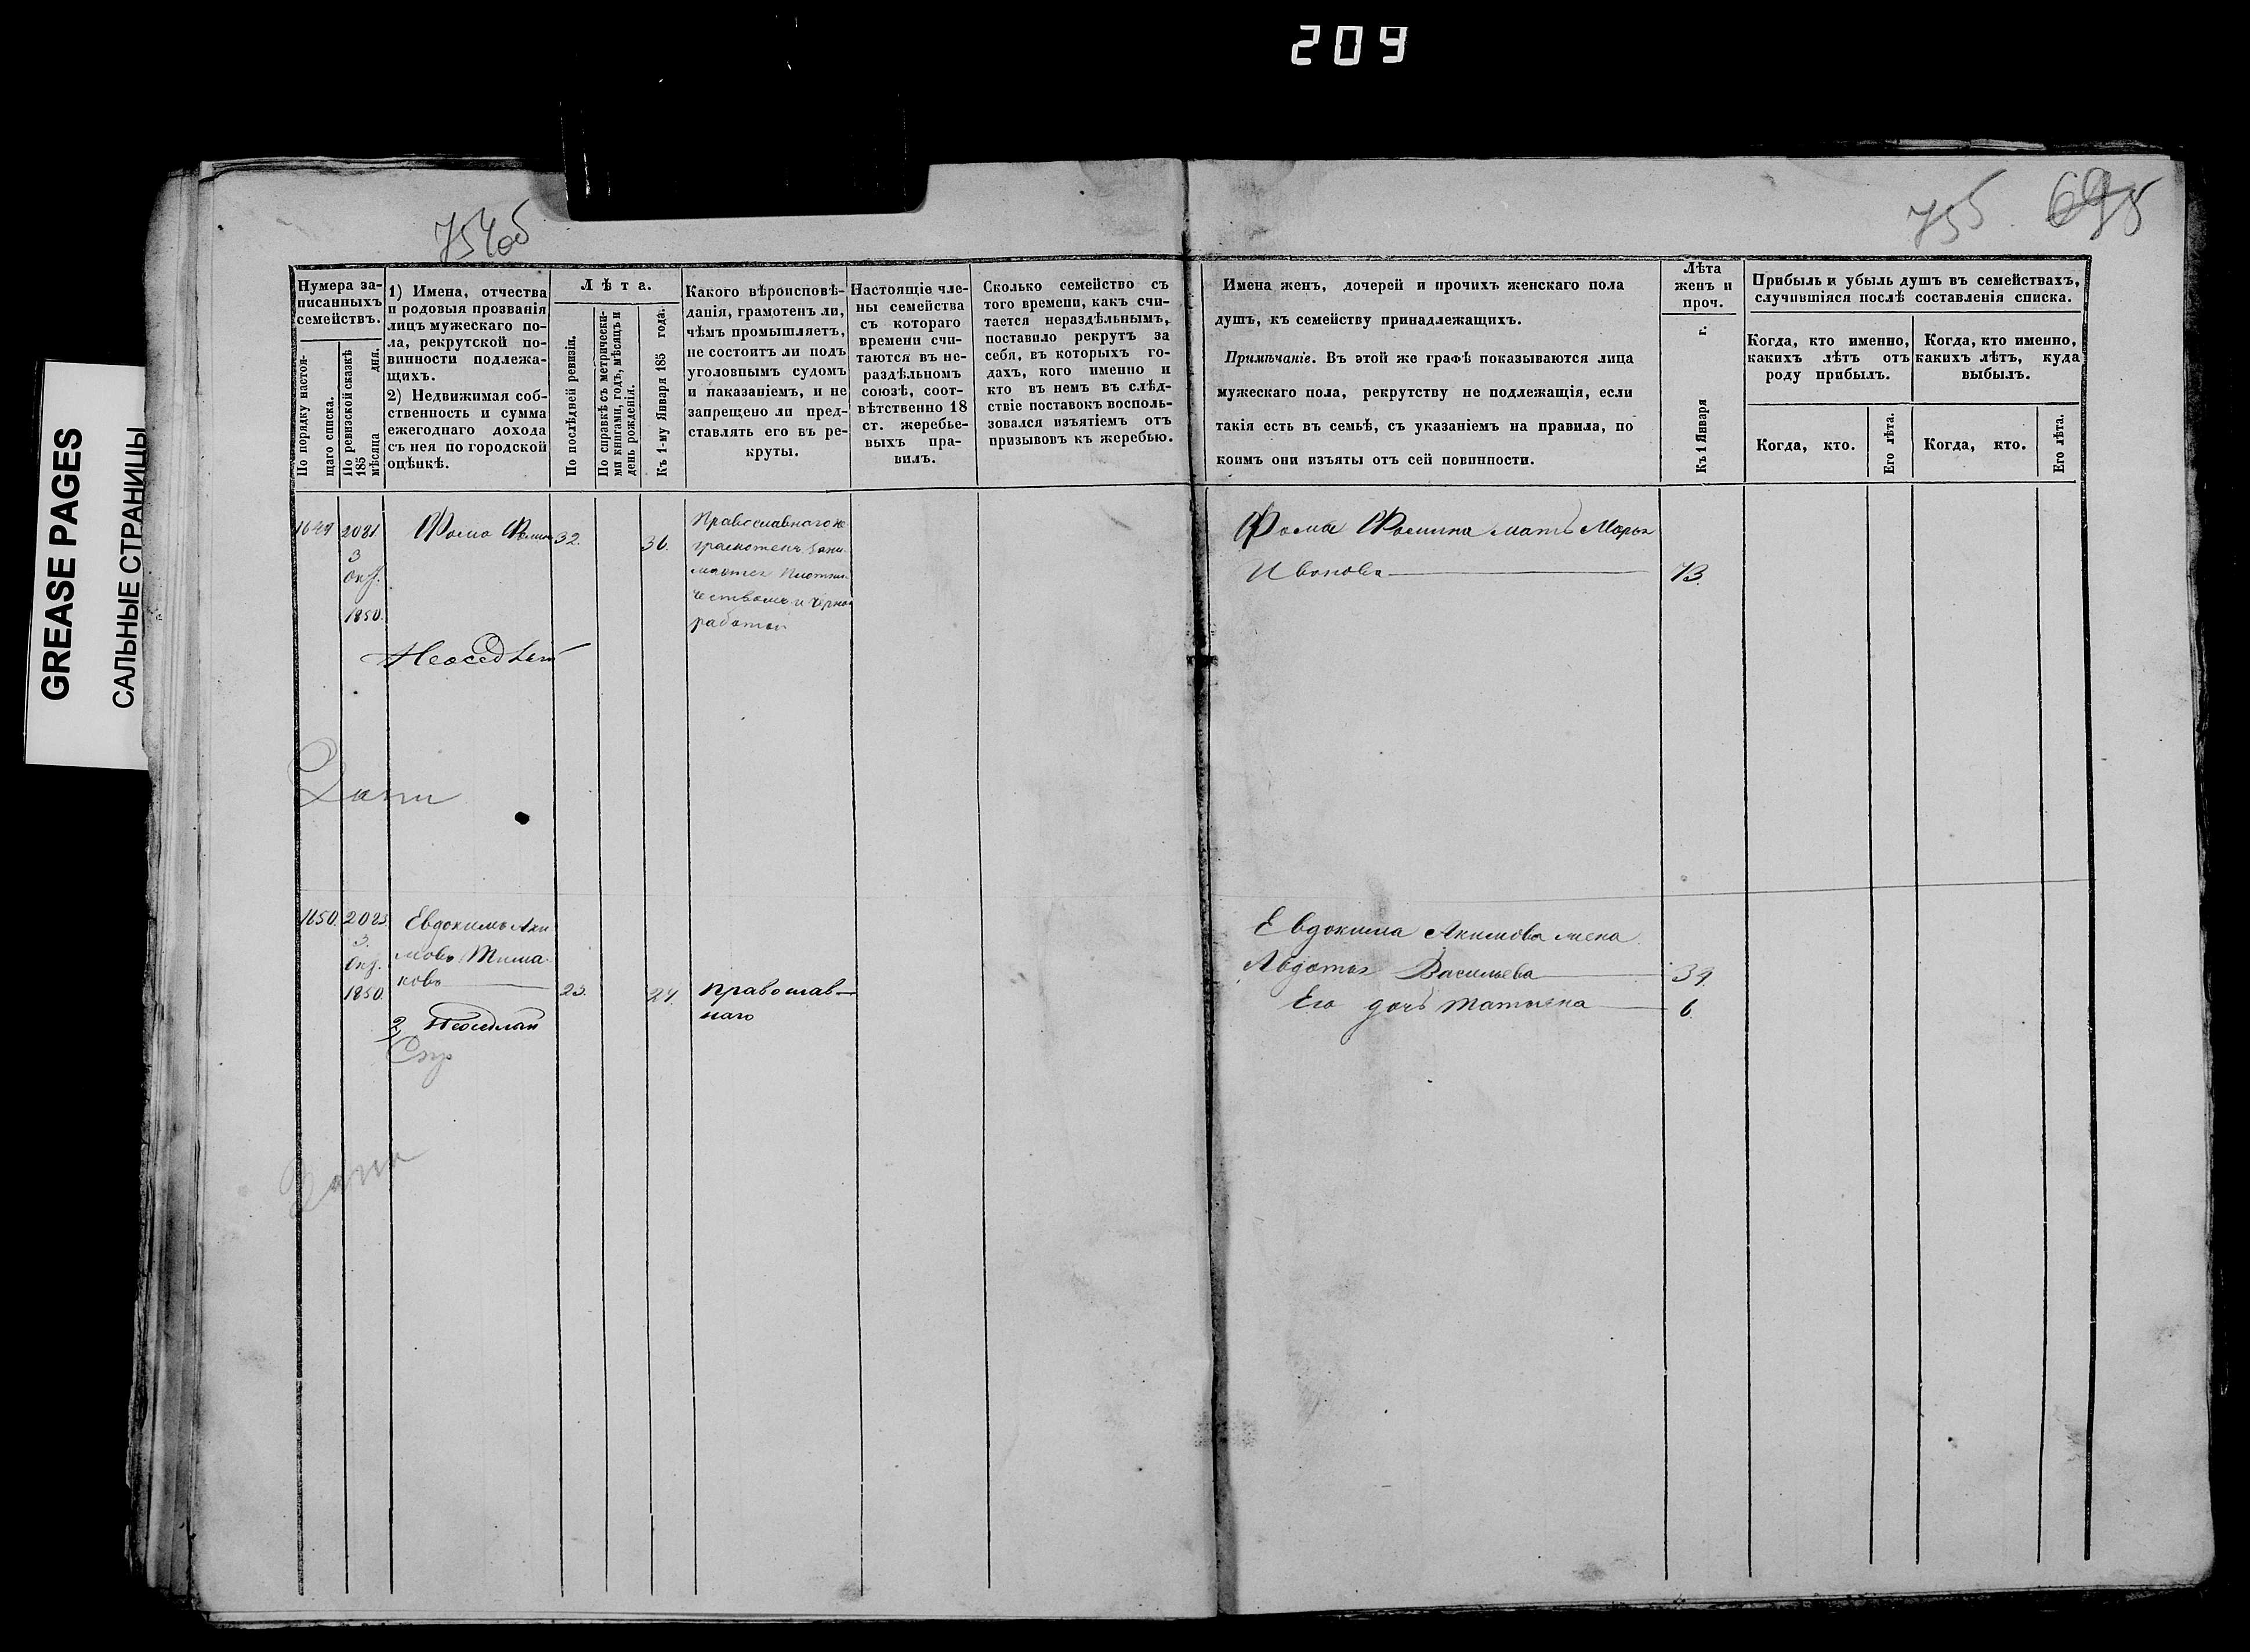 209
GREASE PAGES
САЛЬНЫЕ СТРАНИЦЫ
754об
755
695
Нумера за-
писанныхъ
семействъ.
По порядку настоя-
щаго списка.
По ревизской сказкѣ
185
мѣсяца дня.
1) Имена, отчества
и родовыя прозванія
лицъ мужескаго по-
ла, рекрутской по-
винности подлежа-
щихъ.
2) Недвижимая соб-
ственность и сумма
ежегоднаго дохода
съ нея по городской
оцѣнкѣ.
Лѣта.
По послѣдней ревизіи.
По справкѣ съ метрически-
ми книгами, годъ, мѣсяцъ и
день рожденія.
Къ 1-му Января 185 года.
Какого вѣроисповѣ-
данія, грамотенъ ли,
чѣмъ промышляетъ,
не состоитъ ли подъ
уголовнымъ судомъ
и наказаніемъ, и не
запрещено ли пред-
ставлять его въ ре-
круты.
Настоящіе чле-
ны семейства
съ котораго
времени счи-
таются въ не-
раздѣльномъ
союзѣ, соот-
вѣтственно 18
ст. жеребье-
выхъ пра-
вилъ.
Сколько семейство съ
того времени, какъ счи-
тается нераздѣльнымъ,
поставило рекрутъ за
себя, въ которыхъ го-
дахъ, кого именно и
кто въ немъ въ слѣд-
ствіе поставокъ восполь-
зовался изъятіемъ отъ
призывовъ къ жеребью.
Имена женъ, дочерей и прочихъ женскаго пола
душъ, къ семейству принадлежащихъ.
Примѣчаніе. Въ этой же графѣ показываются лица
мужескаго пола, рекрутству не подлежащія, если
такія есть въ семьѣ, съ указаніемъ на правила, по
коимъ они изъяты отъ сей повинности.
Лѣта
женъ и
проч.
Къ 1 Января г.
Прибыль и убыль душъ въ семействахъ,
случившіяся послѣ составленія списка.
Когда, кто именно,
какихъ лѣтъ отъ
роду прибылъ.
Когда, кто именно,
какихъ лѣтъ, куда
выбылъ.
Когда, кто.
Его лѣта.
Когда, кто.
Его лѣта.
1649
2081
3
Окт.
1850.
Фома Фоминъ
32.
36.
Православнаго не
грамотенъ зани-
мается Плотни-
чествомъ и черно
работой
Неоседлый
Фомы Фомина мать Марья
Иванова
73.
1650.
2085
3.
Окт.
1850.
Евдокимъ Аки
мовъ Тима-
ковъ
23.
27.
Православ-
наго
2 Неоседлый
Евдокима Акимова жена
Авдотья Васильева
39
Его дочь Татьяна
6.